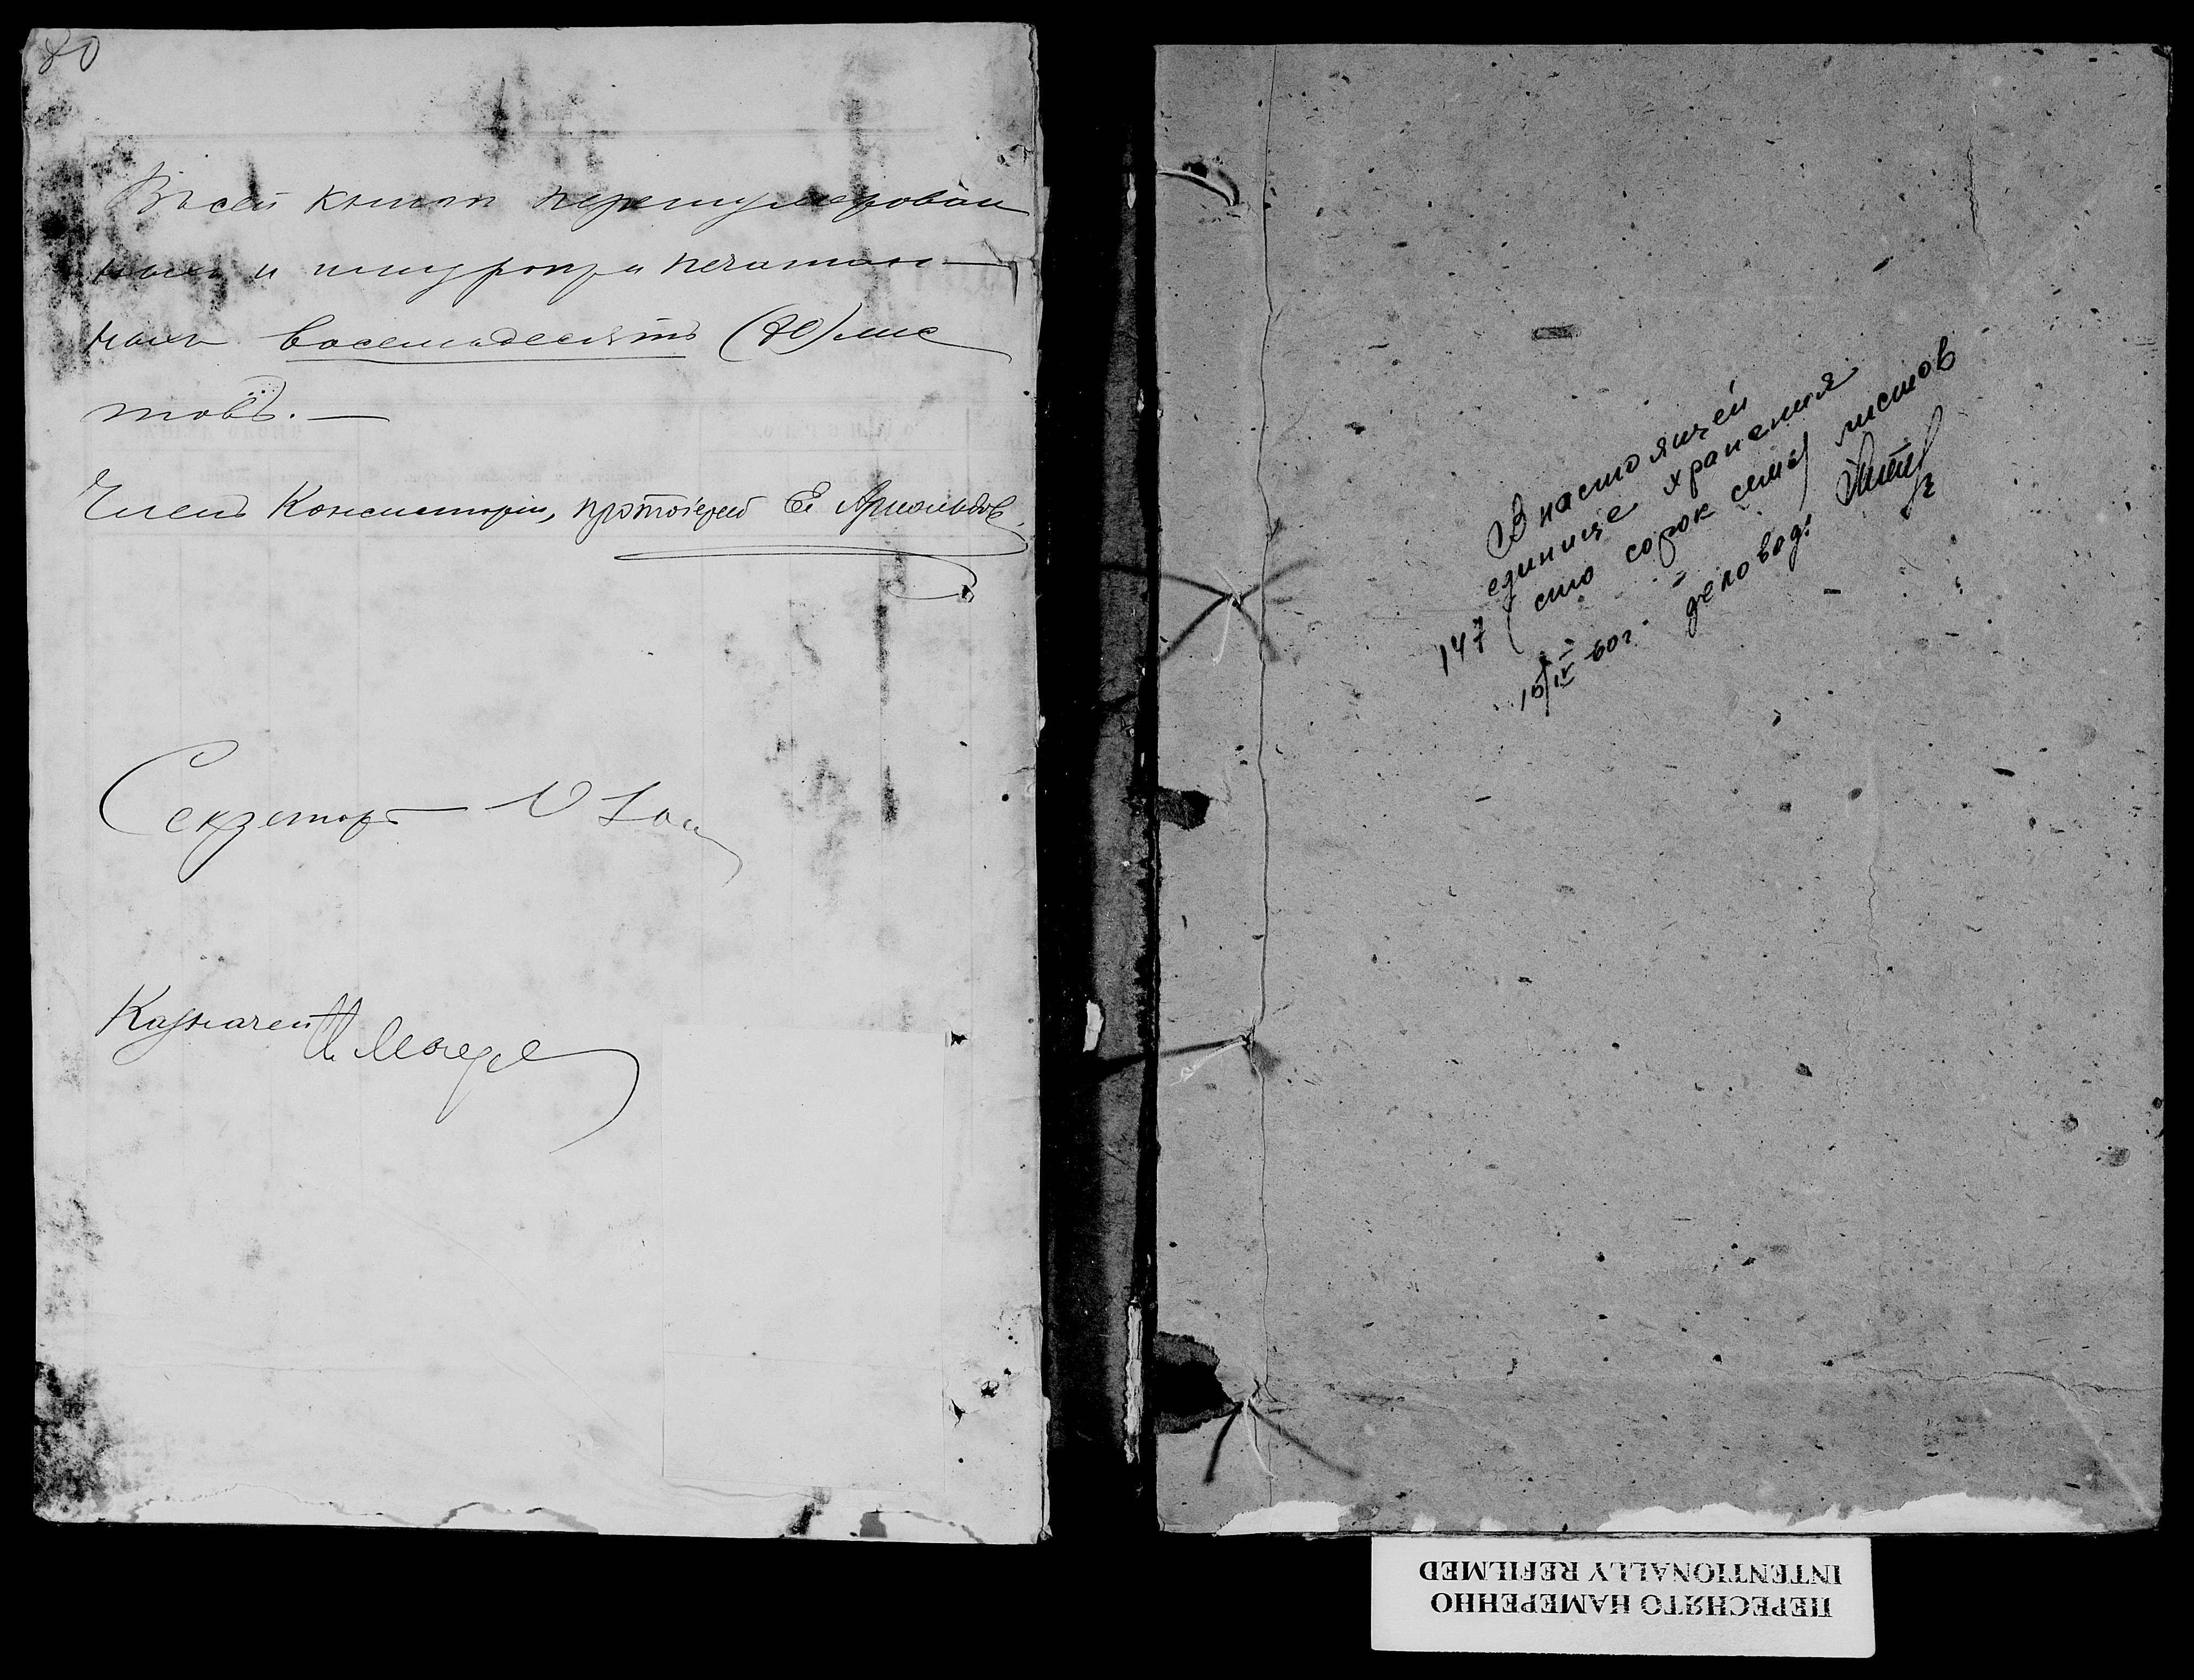 80
Въ сей книгѣ перенумерован
ныхъ и шнурозапечатан-
ныхъ восемьдесятъ (80) лис
товъ. —
Членъ Консисторіи, протоіерей Е. Арнольдов
Секретарь
Казначей
В настоящей
единице хранения
147 (сто сорок семь) листов
16/IV-60г. деловод:
ПЕРЕСНЯТО НАМЕРЕННО
INTENTIONALLY REFILMED